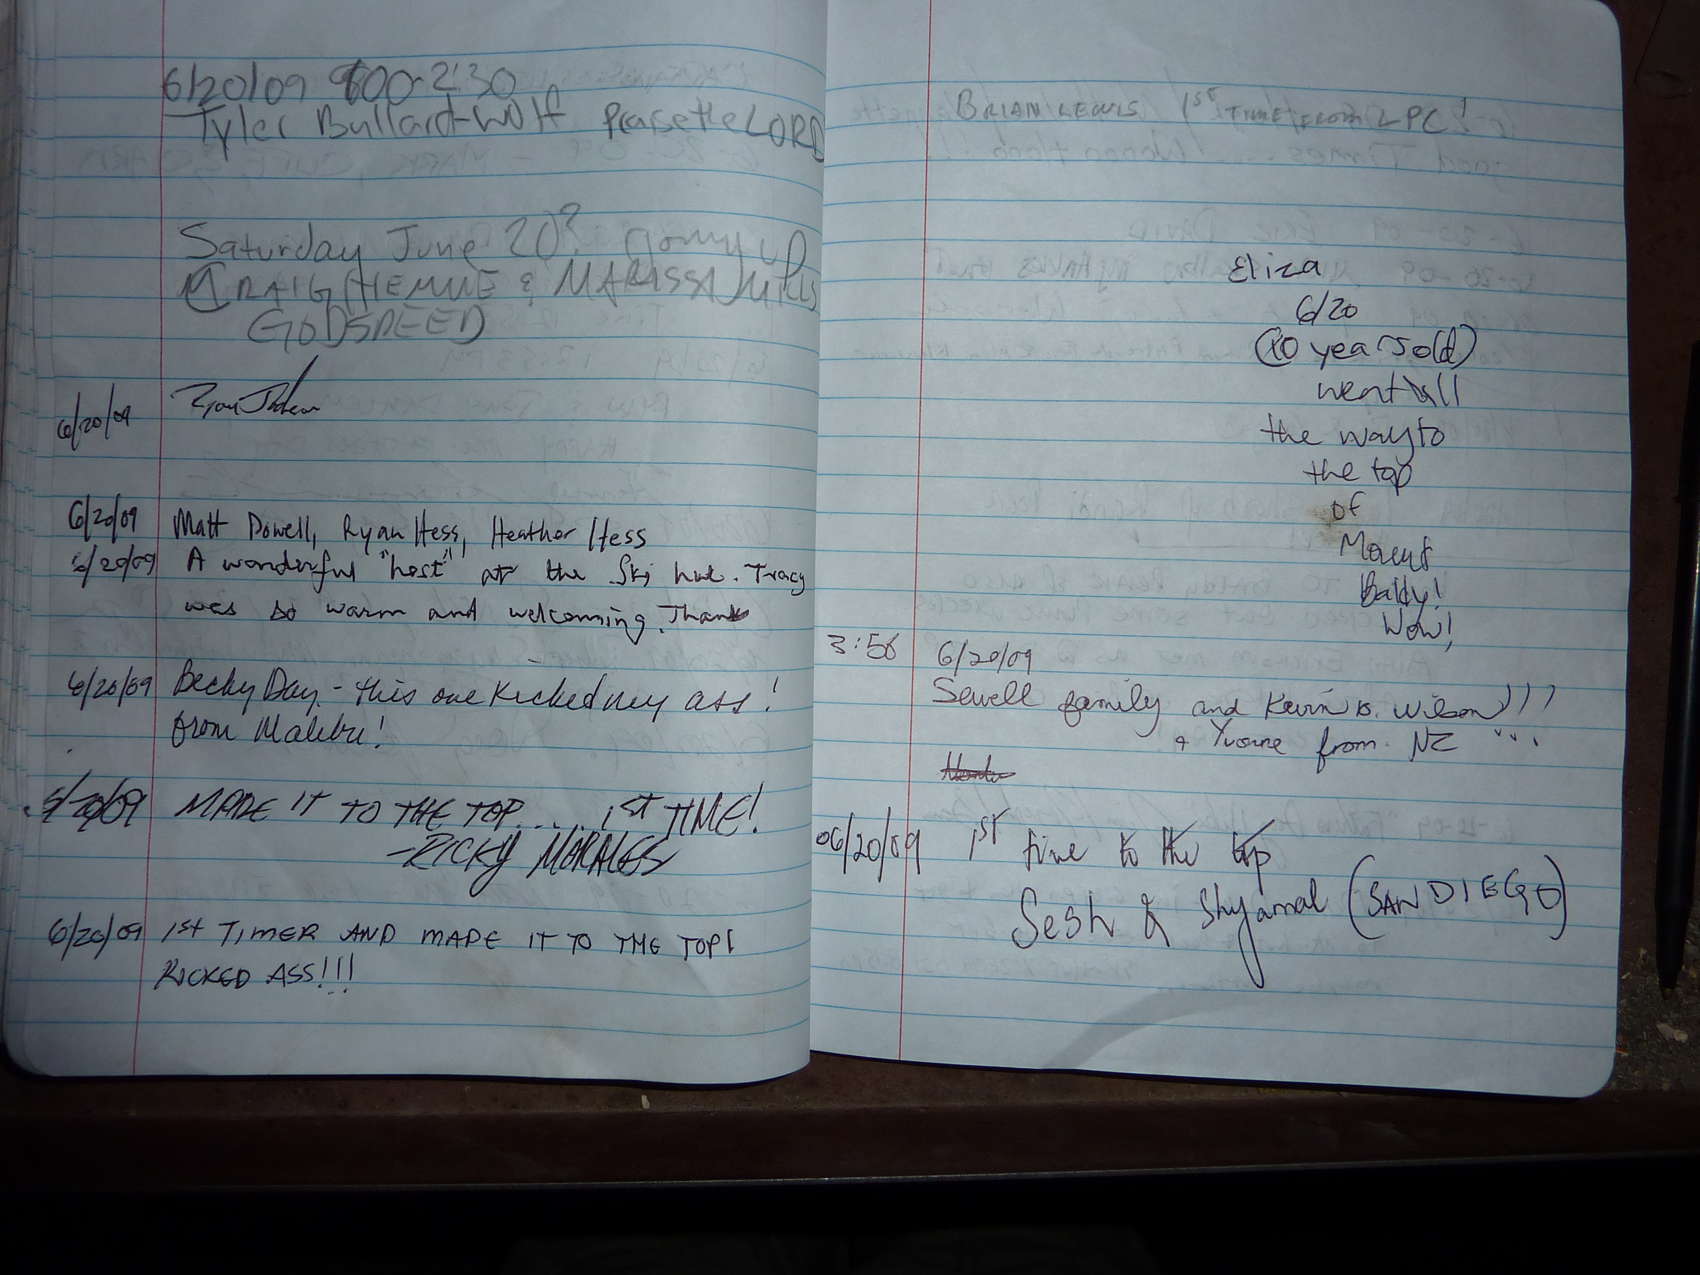 6/20/09 900-2:30
Tyler Bullard-Wolf Praise the LORD
Saturday June 20? going up
CRAIG & MARISSA
GODSPEED
6/20/09
6/20/09 Matt Powell, Ryan Hess, Heather Hess
6/20/09 A wonderful "host" at the Ski hut. Tracy
was so warm and welcoming. Thank
6/20/09 Becky Day - this one kicked my ass!
from Malibu!
6/20/09 MADE IT TO THE TOP.... 1ST TIME!
-RICKY MORALES
6/20/09 1ST TIMER AND MADE IT TO THE TOP!
KICKED ASS!!!
BRIAN LEWIS 1ST TIME FROM LPC!
Eliza
6/20
(10 years old)
went all
the way to
the top
of
Mount
Baldy!
Wow!
3:56 6/20/09
Sewell family and Kevin B. Wilson!!!
& Yvonne from NZ
06/20/09 1st time to the top
Sesh & Shyamal (SAN DIEGO)